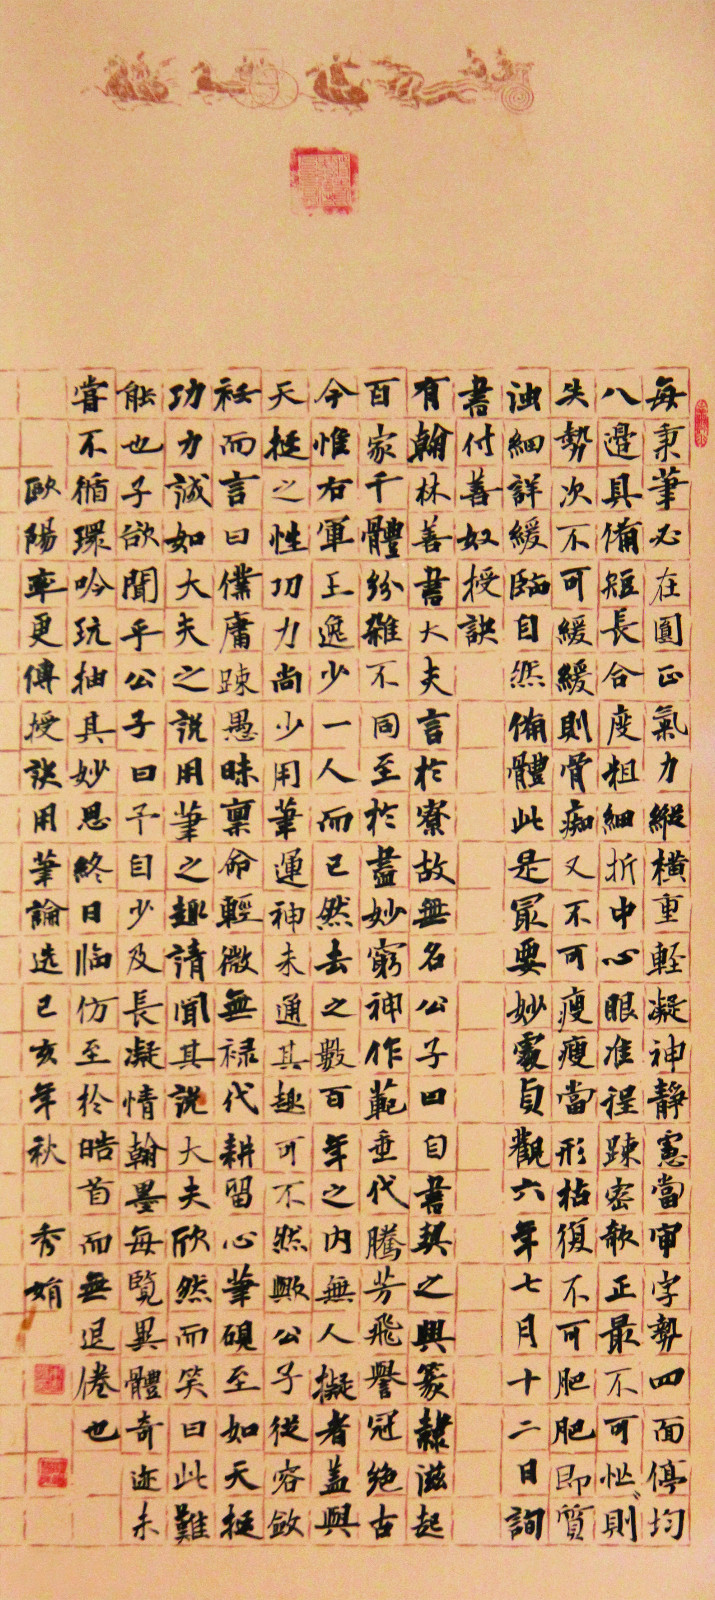 每秉筆必在圓正氣力縱橫重輕凝神靜慮當審字勢四面停均
八邊具備短長合度粗細折中心眼准程踈密欹正最不可忙〻則
失勢次不可緩緩則骨痴又不可瘦瘦當形枯復不可肥肥即質
濁細詳緩臨自然備體此是最要妙處貞觀六年七月十二日詢
書付善奴授訣
有翰林善書大夫言於寮故無名公子曰自書契之興篆隸滋起
百家千體紛雜不同至於盡妙窮神作範垂代騰芳飛譽冠絶古
今惟右軍王逸少一人而已然去之數百年之內無人擬者蓋與
天挺之性功力尚少用筆運神未通其趣可不然歟公子從容斂
衽而言曰僕庸踈愚昧禀命輕微無禄代耕留心筆硯至如天挺
功力誠如大夫之說用筆之趣請聞其說大夫欣然而笑曰此難
能也子欲聞乎公子曰予自少及長凝情翰墨每覽異體奇迹未
甞不循環吟玩抽其妙思終日临仿至於皓首而無退倦也
歐陽率更傳授訣用筆論选己亥年秋 秀娟